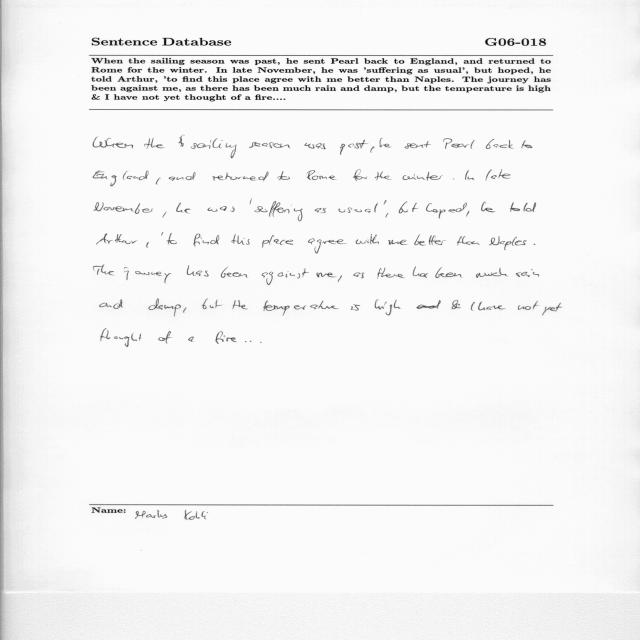 Sentence Database G06-018
When the sailing season was past, he sent Pearl back to England, and returned to
Rome for the winter. In late November, he was 'suffering as usual', but hoped, he
told Arthur, 'to find this place agree with me better than Naples. The journey has
been against me, as there has been much rain and damp, but the temperature is high
& I have not yet thought of a fire....
When the sailing season was past, he sent Pearl back to
England, and returned to Rome for the winter. In late
November, he was 'suffering as usual', but hoped, he told
Arthur, 'to find this place agree with me better than Naples.
The journey has been against me, as there has been much rain
and damp, but the temperature is high & I have not yet
thought of a fire...
Name: